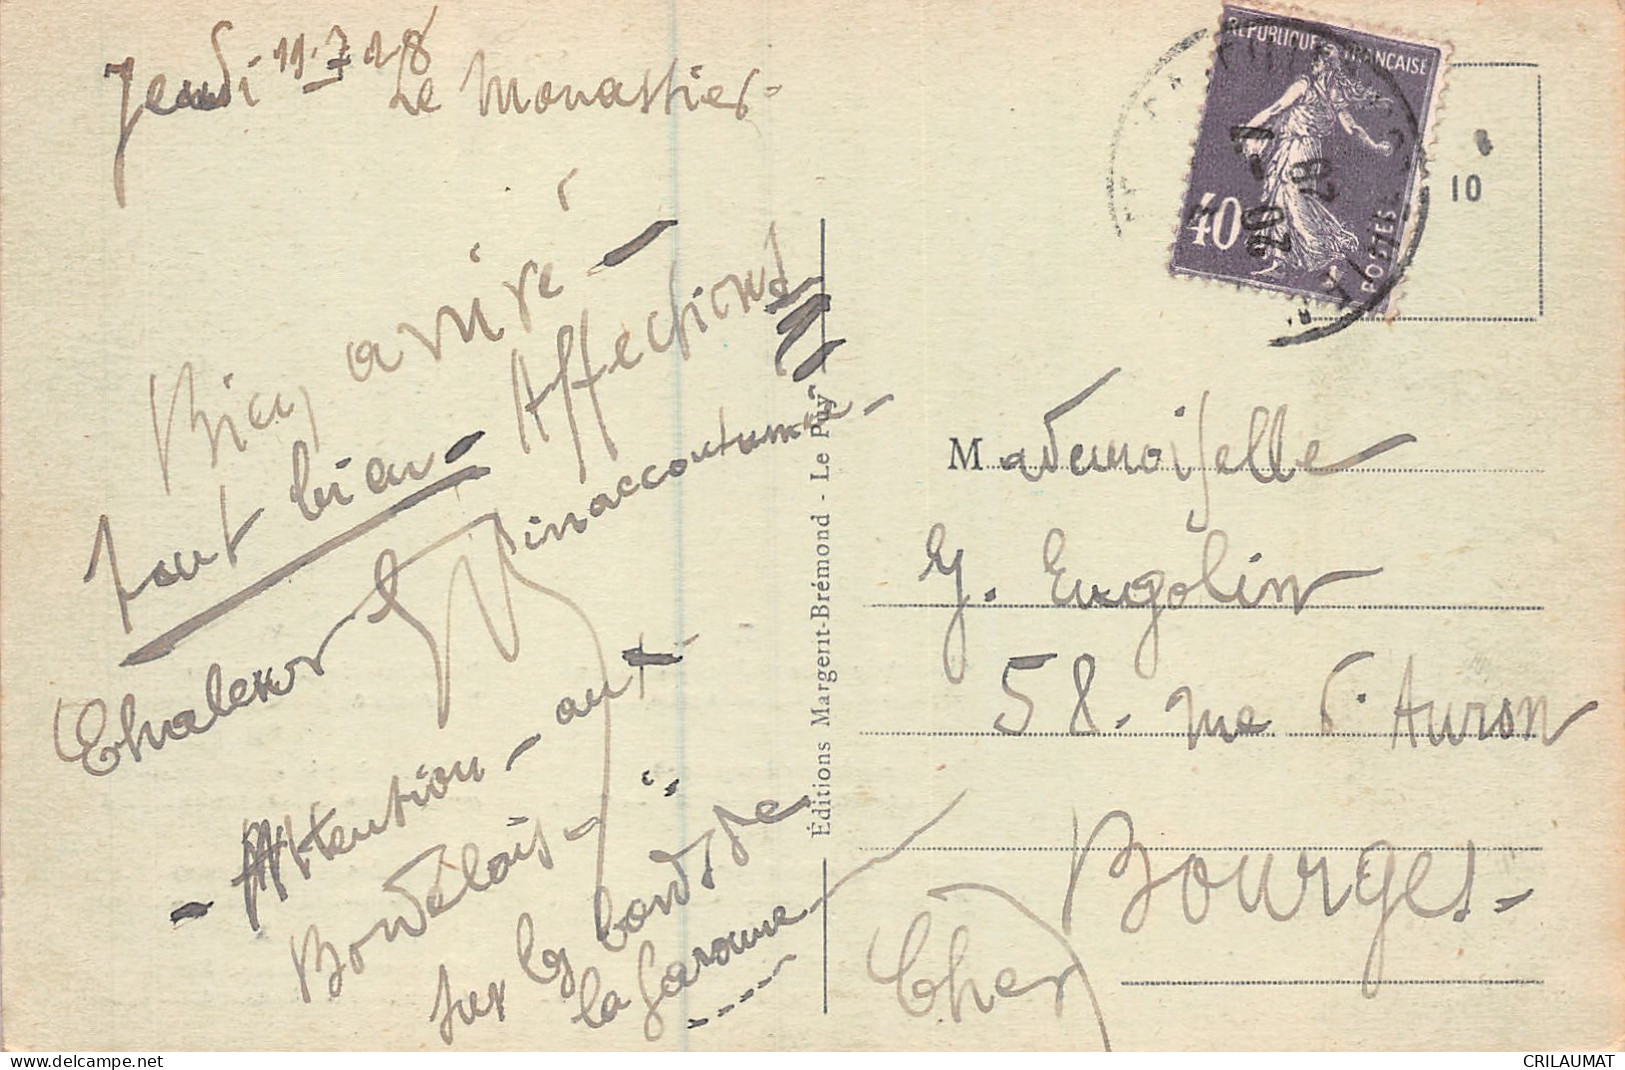 Jeudi 11.7 28
Le Monastier -
Bien arrivé -
tout bien - Affections
Chaleur inaccoutumée -
- Attention - aux
Bordelais -
sur les bords de
la Garonne
Éditions Margent-Brémond - Le Puy
RÉPUBLIQUE FRANÇAISE
40c
POSTES
20 -7
28
10
Mademoiselle
G. Eugolin
58. rue d'Auron
Bourges -
Cher
CRILAUMAT